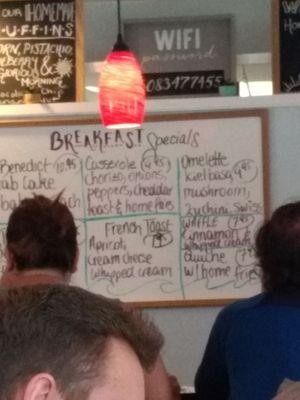 OUR HOMEMADE
UFFINS
ORN, PISTACHIO
EBERRY &
GLORIOUS &
MORNING
WIFI
password
083477455
BREAKFAST Specials
Benedict 10.95
ab Cake
Casserole
chorizo, onions,
peppers, cheddar
toast & home fries
Omelette
kielbasa
mushroom,
zucchini, swiss
French Toast
Apricot,
Cream cheese
whipped cream
WAFFLE 7.95
Cinnamon &
whipped cream
quiche
w/ home fries